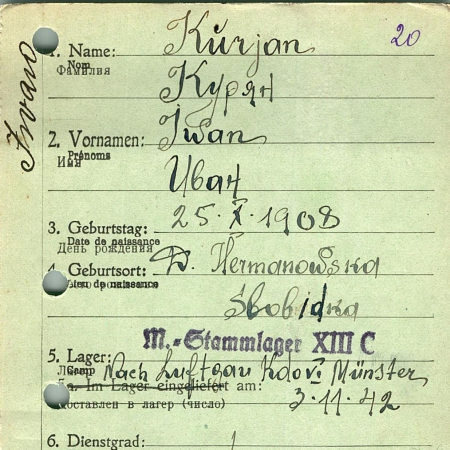 20
Iwan
1. Name: Kŭrjan
Nom
Фамилия
Курян
2. Vornamen: Iwan
Prénoms
Имя
Иван
3. Geburtstag: 25.X.1908
Date de naissance
День рождения
4. Geburtsort: D. Hermanowska
Lieu de naissance
Slobidka
M.-Stammlager XIII C
5. Lager: Nach Luftgau Kdo VI Münster
Camp
5a. Im Lager eingeliefert am: 3.11.42
Доставлен в лагерь (число)
6. Dienstgrad: